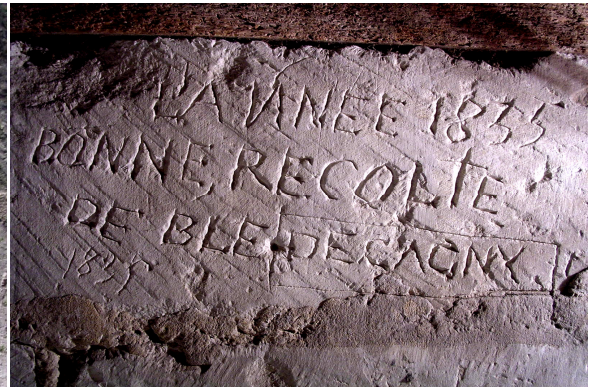 L'ANNEE 1835
BONNE RECOLTE
DE BLE DECAGNY
1835